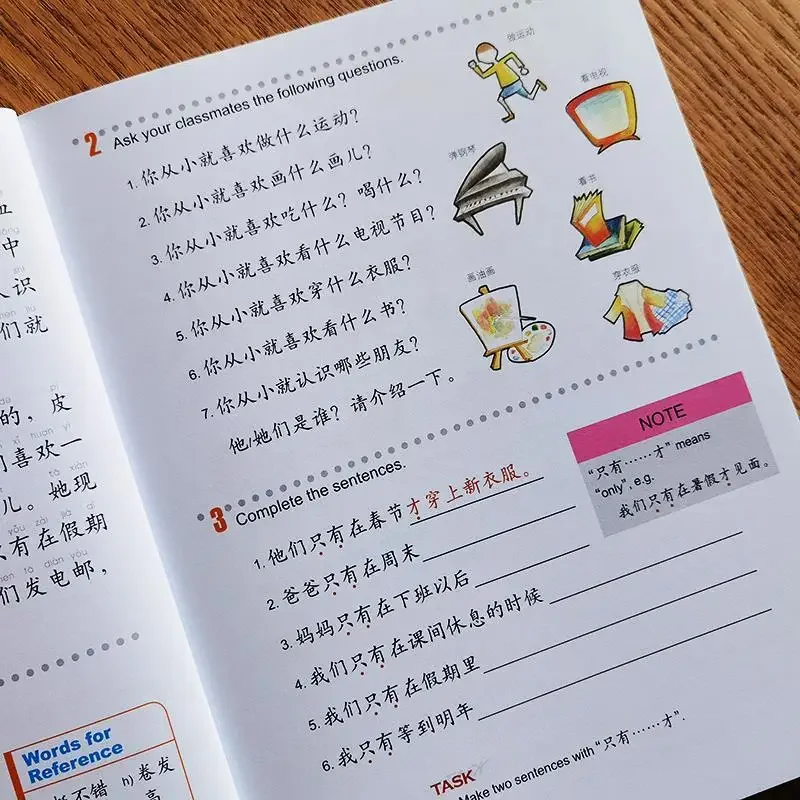 中
识
们就
的，皮
xǐ huān yī
喜欢一
tā xiàn
儿。她现
yǒu zài jià qī
有在假期
diàn yóu
们发电邮，
Words for
Reference
不错 h)卷发
高
2 Ask your classmates the following questions.
1. 你从小就喜欢做什么运动？
2. 你从小就喜欢画什么画儿？
3. 你从小就喜欢吃什么？喝什么？
4. 你从小就喜欢看什么电视节目？
5. 你从小就喜欢穿什么衣服？
6. 你从小就喜欢看什么书？
7. 你从小就认识哪些朋友？
他/她们是谁？请介绍一下。
做运动
看电视
弹钢琴
看书
画油画
穿衣服
3 Complete the sentences.
1. 他们只有在春节才穿上新衣服。
2. 爸爸只有在周末
3. 妈妈只有在下班以后
4. 我们只有在课间休息的时候
5. 我们只有在假期里
6. 我只有等到明年
NOTE
“只有……才” means
“only”, e.g.
我们只有在暑假才见面。
TASK
Make two sentences with “只有……才”.